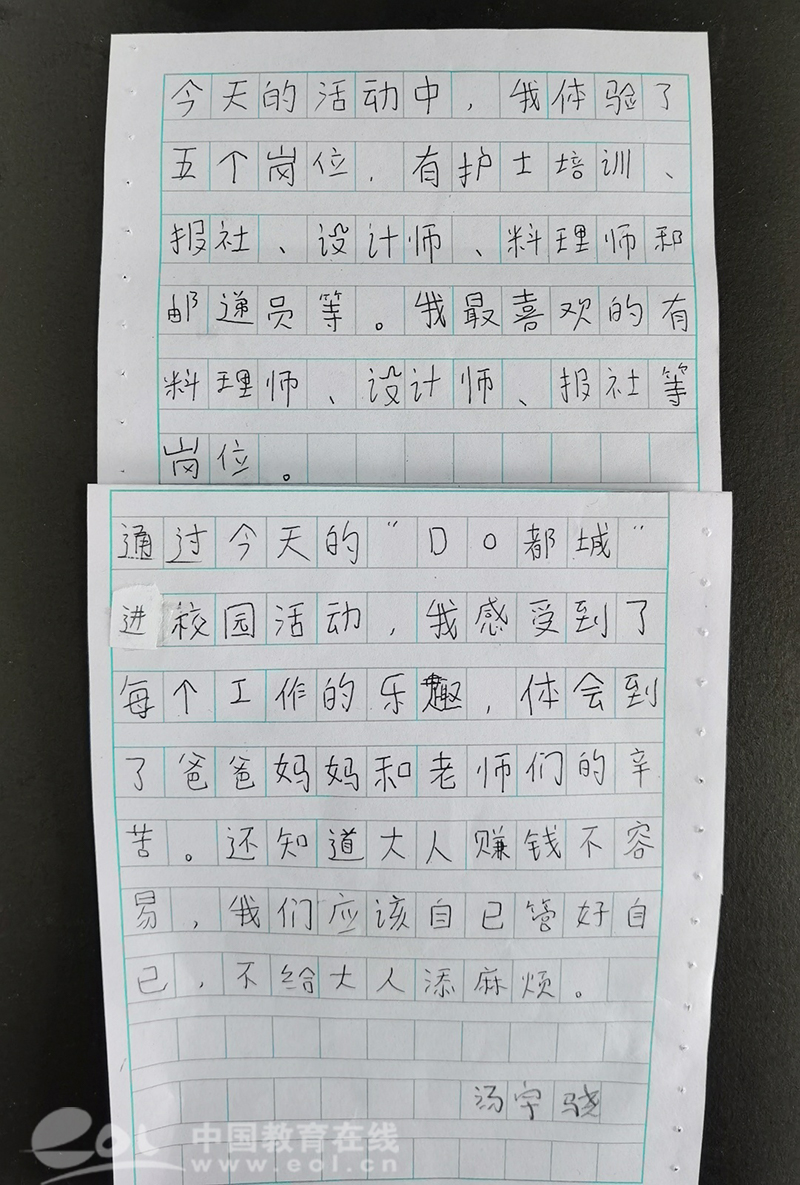 今天的活动中，我体验了
五个岗位，有护士培训、
报社、设计师、料理师和
邮递员等。我最喜欢的有
料理师、设计师、报社等
岗位。
通过今天的“DO都城”
进校园活动，我感受到了
每个工作的乐趣，体会到
了爸爸妈妈和老师们的辛
苦。还知道大人赚钱不容
易，我们应该自己管好自
己，不给大人添麻烦。
汤宇骁
eol 中国教育在线
www.eol.cn